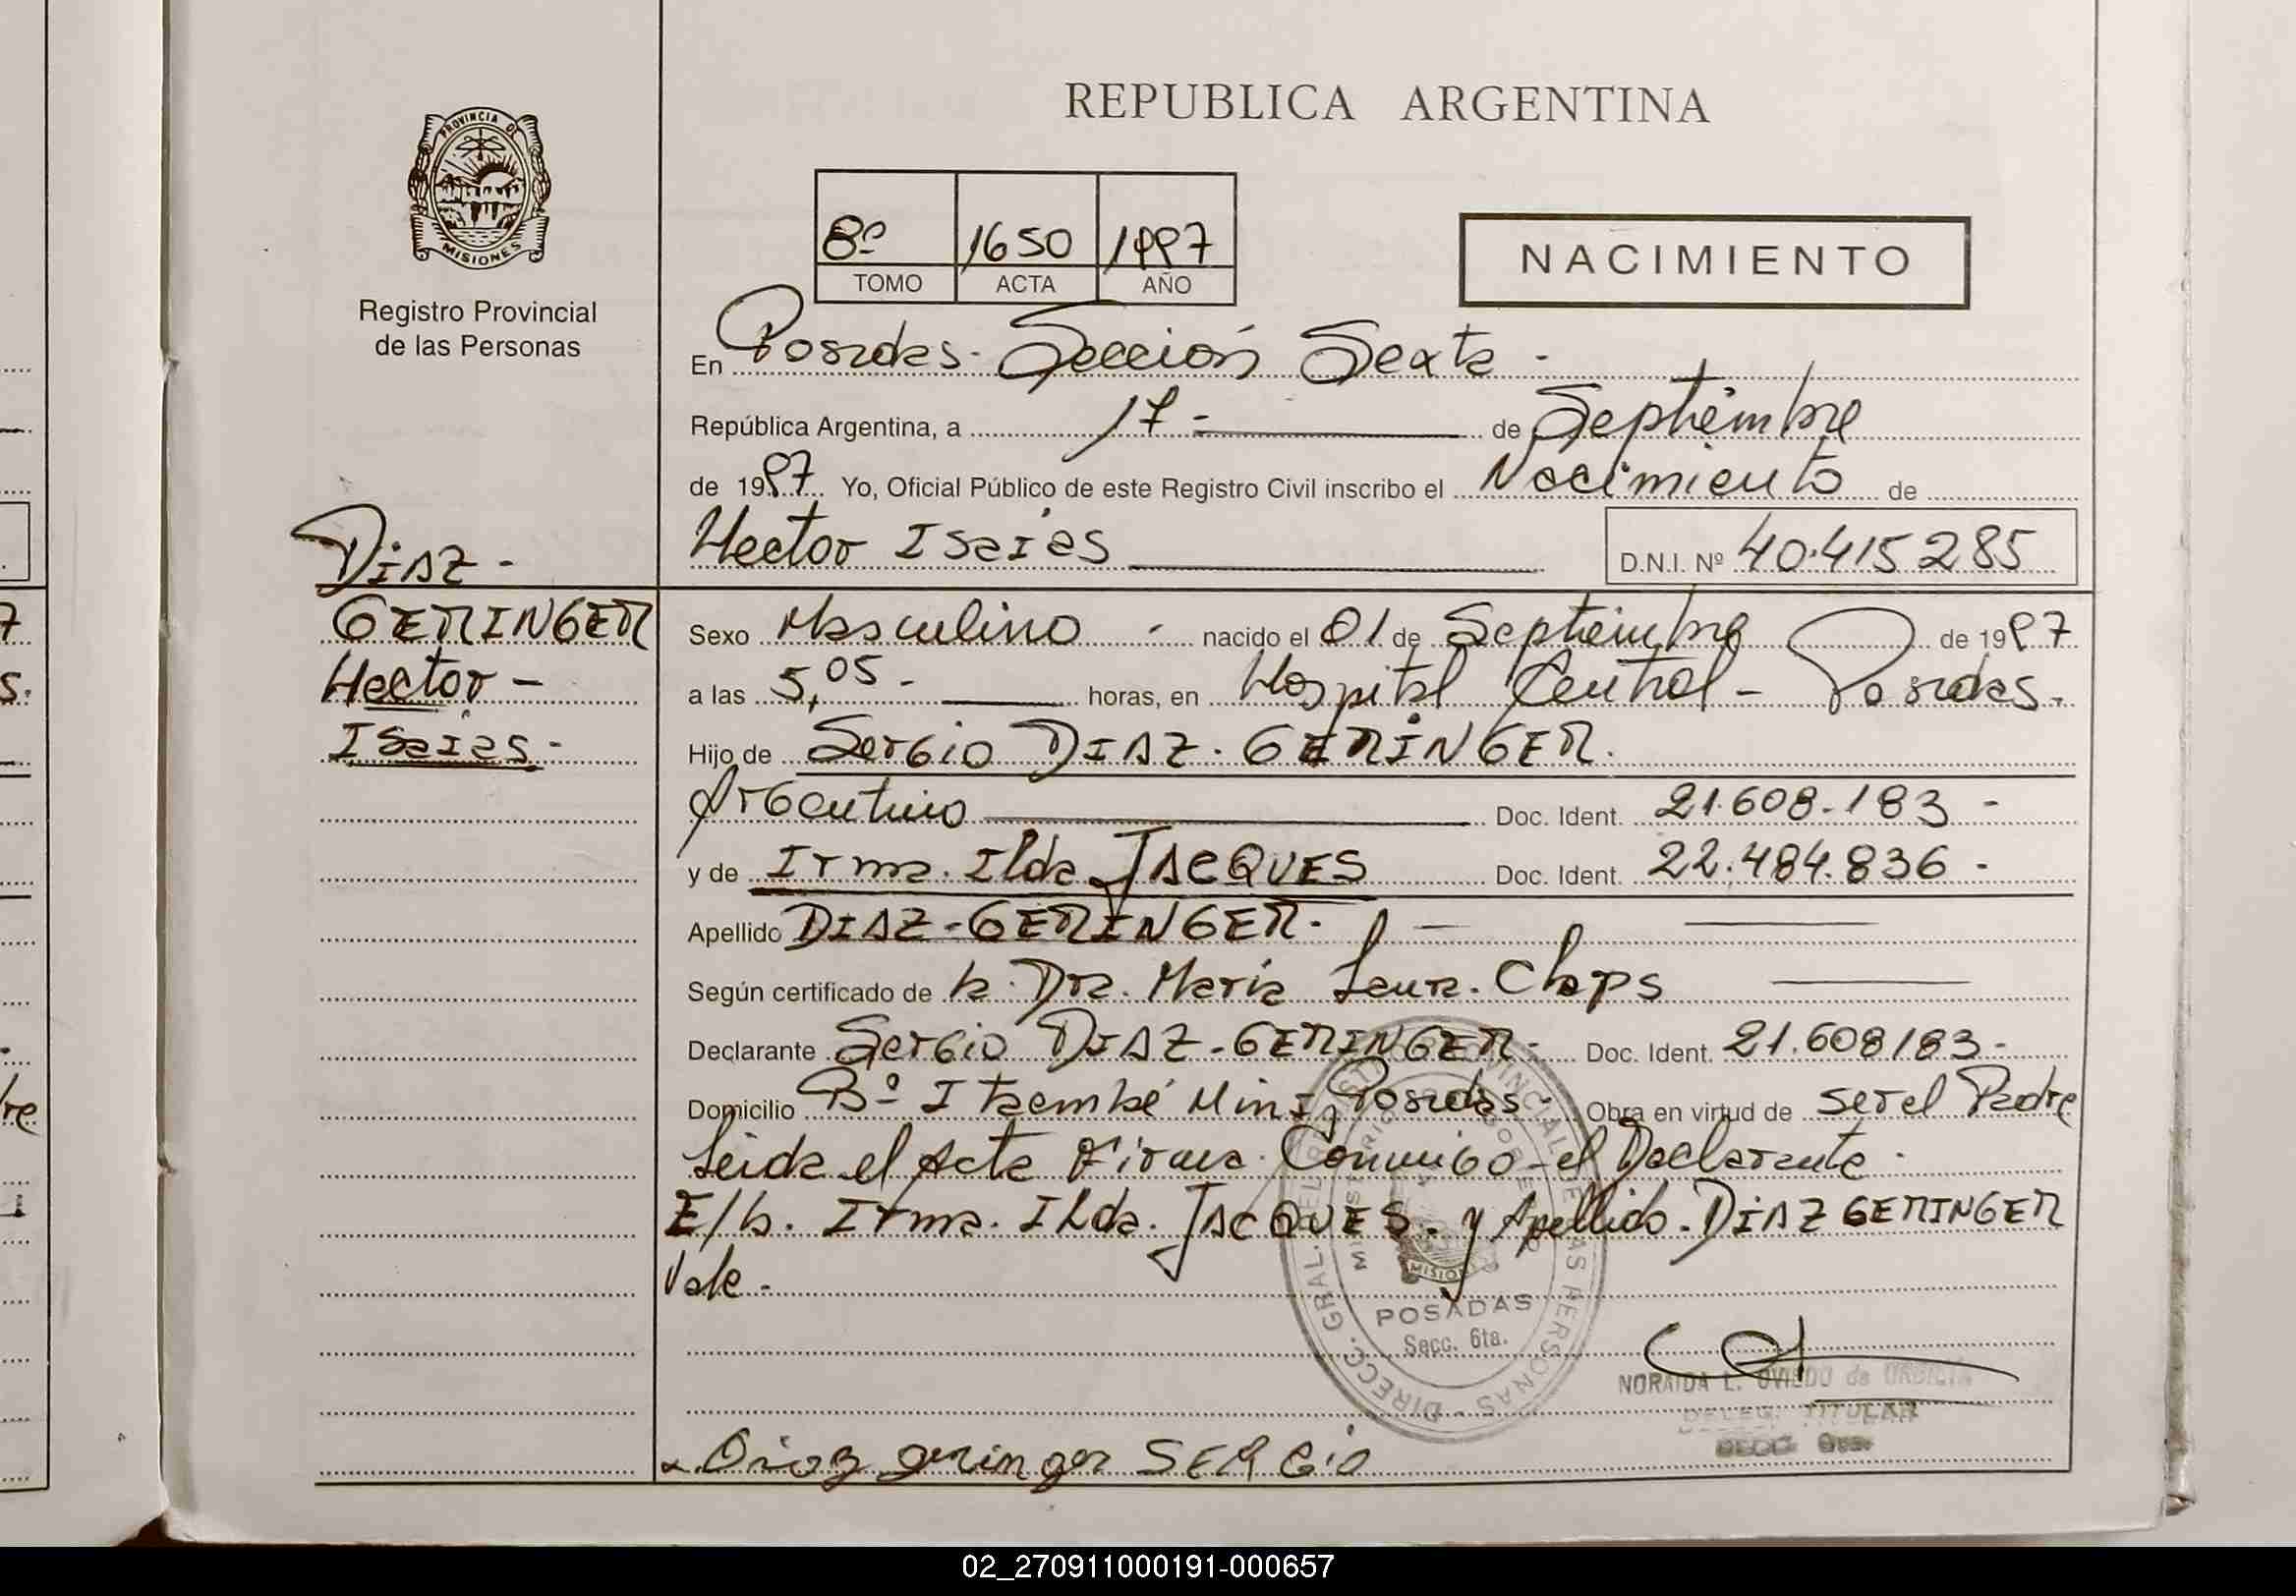 REPUBLICA ARGENTINA
PROVINCIA DE MISIONES
Registro Provincial
de las Personas
8º 1650 1997
TOMO ACTA AÑO
NACIMIENTO
En Posadas - Sección Sexta -
República Argentina, a 17 - de Septiembre
de 1997 Yo, Oficial Público de este Registro Civil inscribo el Nacimiento de
Hector Isaías D.N.I. Nº 40.415285
DIAZ -
GERINGER
Hector -
Isaias -
Sexo Masculino - nacido el 01 de Septiembre de 1997
a las 5,05 - horas, en Hospital Central - Posadas.
Hijo de Sergio DIAZ - GERINGER.
Argentino Doc. Ident. 21.608.183 -
y de Irma Ilda JACQUES Doc. Ident. 22.484.836 -
Apellido DIAZ - GERINGER.
Según certificado de la Dra. María Laura Claps
Declarante Sergio DIAZ - GERINGER - Doc. Ident. 21.608183 -
Domicilio Bº Itaembé Miní Posadas - Obra en virtud de ser el Padre
Leida el Acta Firma Conmigo - el Declarante -
E/L. Irma. Ilda. JACQUES. y Apellido. DIAZ GERINGER
Vale -
DIRECC. GRAL. DEL REGISTRO PROVINCIAL DE LAS PERSONAS
MISIONES
POSADAS
Secc. 6ta.
NORAIDA L. OVIEDO de
DELEG. TITULAR
SECC. 6ta.
Diaz geringer SERGIO
02_270911000191-000657